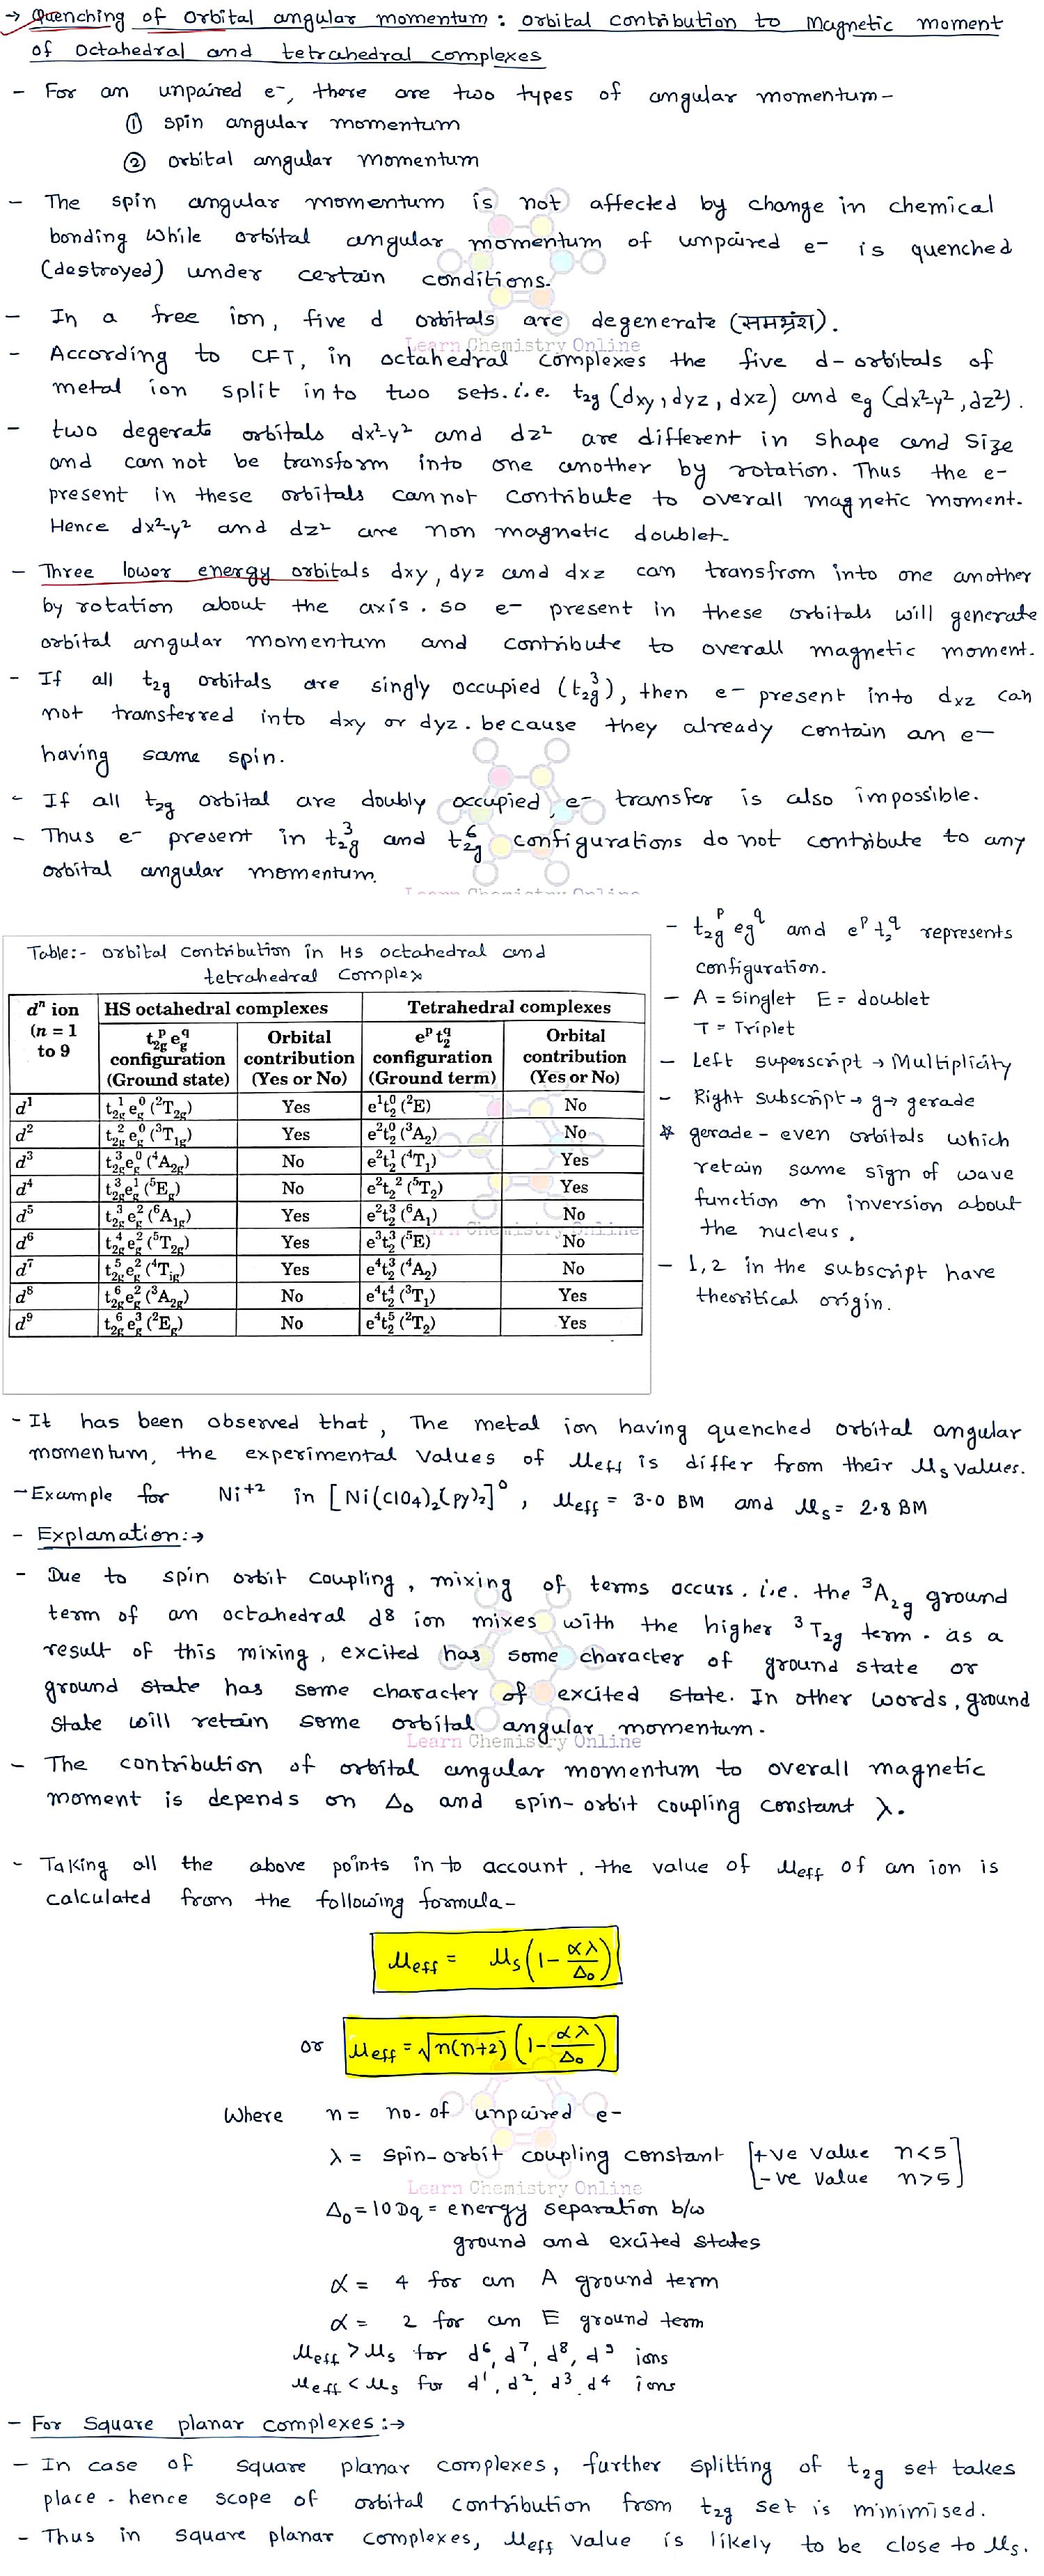 → Quenching of orbital angular momentum : orbital contribution to Magnetic moment
of octahedral and tetrahedral complexes
- For an unpaired e-, there are two types of angular momentum-
① spin angular momentum
② orbital angular momentum
- The spin angular momentum is not affected by change in chemical
bonding while orbital angular momentum of unpaired e- is quenched
(destroyed) under certain conditions.
- In a free ion, five d orbitals are degenerate (समभ्रंश).
Learn Chemistry Online
- According to CFT, in octahedral complexes the five d-orbitals of
metal ion split in to two sets. i.e. t2g (dxy, dyz, dxz) and eg (dx²-y², dz²).
- two degerate orbitals dx²-y² and dz² are different in shape and size
and can not be transform into one another by rotation. Thus the e-
present in these orbitals cannot contribute to overall magnetic moment.
Hence dx²-y² and dz² are non magnetic doublet.
- Three lower energy orbitals dxy, dyz and dxz can transfrom into one another
by rotation about the axis. so e- present in these orbitals will generate
orbital angular momentum and contribute to overall magnetic moment.
- If all t2g orbitals are singly occupied (t2g³), then e- present into dxz can
not transferred into dxy or dyz. because they already contain an e-
having same spin.
- If all t2g orbital are doubly occupied, e- transfer is also impossible.
- Thus e- present in t2g³ and t2g⁶ configurations do not contribute to any
orbital angular momentum.
Learn Chemistry Online
Table:- orbital contribution in Hs octahedral and
tetrahedral Complex
dⁿ ion (n = 1 to 9 | HS octahedral complexes | Tetrahedral complexes
t2g^p eg^q configuration (Ground state) | Orbital contribution (Yes or No) | e^p t2^q configuration (Ground term) | Orbital contribution (Yes or No)
d¹ | t2g¹ eg⁰ (²T2g) | Yes | e¹t2⁰ (²E) | No
d² | t2g² eg⁰ (³T1g) | Yes | e²t2⁰ (³A2) | No
d³ | t2g³ eg⁰ (⁴A2g) | No | e²t2¹ (⁴T1) | Yes
d⁴ | t2g³ eg¹ (⁵Eg) | No | e²t2² (⁵T2) | Yes
d⁵ | t2g³ eg² (⁶A1g) | Yes | e²t2³ (⁶A1) | No
d⁶ | t2g⁴ eg² (⁵T2g) | Yes | e³t2³ (⁵E) | No
d⁷ | t2g⁵ eg² (⁴Tig) | Yes | e⁴t2³ (⁴A2) | No
d⁸ | t2g⁶ eg² (³A2g) | No | e⁴t2⁴ (³T1) | Yes
d⁹ | t2g⁶ eg³ (²Eg) | No | e⁴t2⁵ (²T2) | Yes
- t2g^p eg^q and e^p t2^q represents
configuration.
- A = Singlet E = doublet
T = Triplet
- Left superscript → Multiplicity
- Right subscript → g → gerade
* gerade - even orbitals which
retain same sign of wave
function on inversion about
the nucleus.
- 1,2 in the subscript have
theoritical origin.
- It has been observed that, The metal ion having quenched orbital angular
momentum, the experimental values of μeff is differ from their μs values.
- Example for Ni+2 in [Ni(ClO4)2(py)2]⁰, μeff = 3.0 BM and μs = 2.8 BM
- Explanation:→
- Due to spin orbit coupling, mixing of terms occurs. i.e. the ³A2g ground
term of an octahedral d8 ion mixes with the higher ³T2g term. as a
result of this mixing, excited has some character of ground state or
ground state has some character of excited state. In other words, ground
state will retain some orbital angular momentum.
Learn Chemistry Online
- The contribution of orbital angular momentum to overall magnetic
moment is depends on Δo and spin-orbit coupling constant λ.
- Taking all the above points in to account, the value of μeff of an ion is
calculated from the following formula-
μeff = μs (1 - αλ/Δo)
or μeff = √n(n+2) (1 - αλ/Δo)
Where n = no. of unpaired e-
λ = spin-orbit coupling constant [+ve value n<5
-ve value n>5]
Learn Chemistry Online
Δo = 10Dq = energy separation b/w
ground and excited states
α = 4 for an A ground term
α = 2 for an E ground term
μeff > μs for d⁶, d⁷, d⁸, d⁹ ions
μeff < μs for d¹, d², d³, d⁴ ions
- For Square planar complexes:→
- In case of square planar complexes, further splitting of t2g set takes
place. hence scope of orbital contribution from t2g set is minimised.
- Thus in square planar complexes, μeff value is likely to be close to μs.